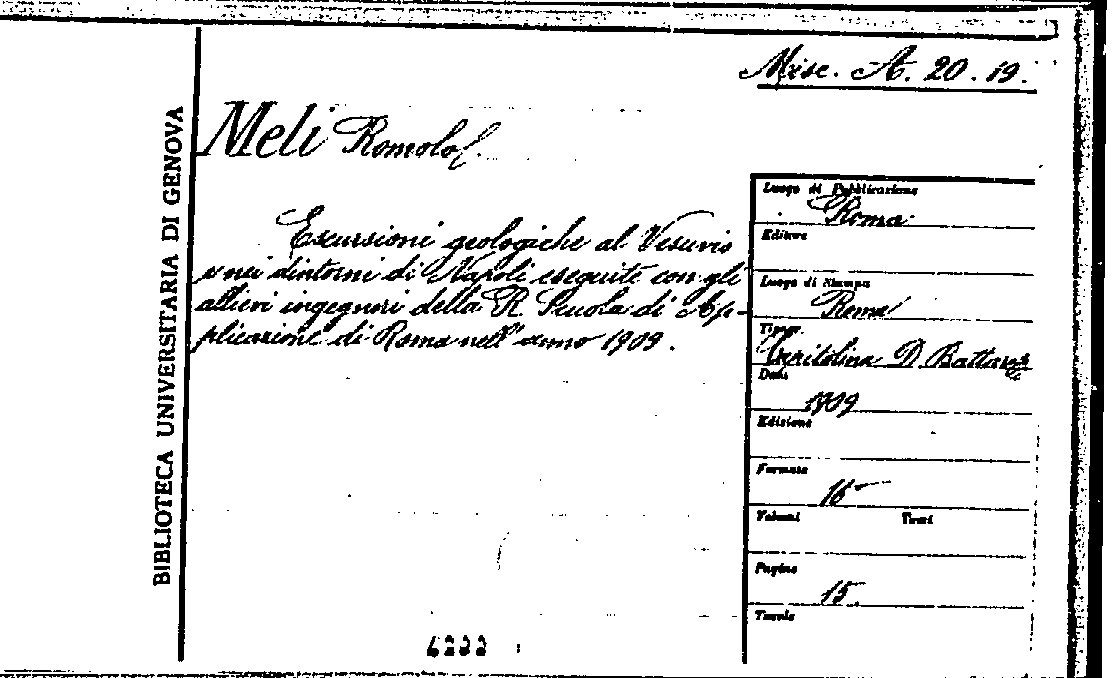 Misc. A. 20. 19.
BIBLIOTECA UNIVERSITARIA DI GENOVA
Meli Romolo
Escursioni geologiche al Vesuvio
e nei dintorni di Napoli eseguite con gli
allievi ingegneri della R. Scuola di Ap-
plicazione di Roma nell'anno 1909.
Luogo di Pubblicazione
Roma
Editore
Luogo di Stampa
Roma
Tipogr.
D. Battarelli
Data
1909
Edizione
Formato
16
Volumi Tomi
Pagine
15
Tavole